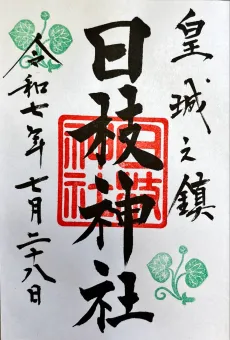 皇城之鎮
日枝神社
令和七年七月二十八日